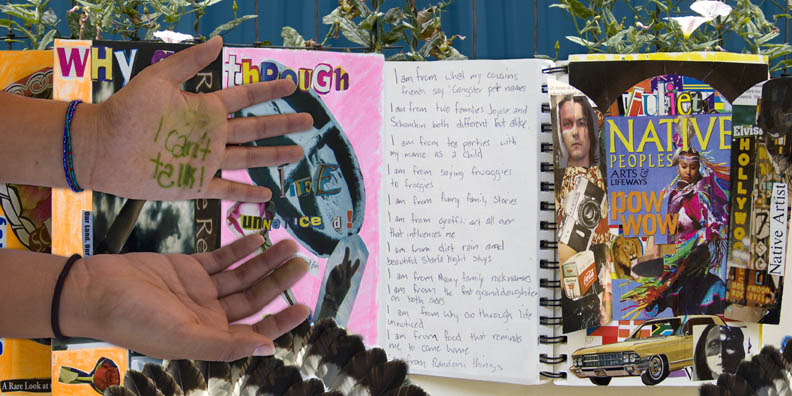 WHY
through
LIFE
Unnoticed!
I can't
talk!
Our Land, Our
A Rare Look at
I am from what my cousins,
friends say "Gangster pet names
I am from two families Joyster and
Schonchin both different but alike.
I am from tea parties with
my mame as a child
I am from saying fruoggies
to froggies
I am from funny family stories
I am from graffiti art all over
that influences me
I am from dirt rain and
beautiful starlid night skys
I am from many family nicknames
I am from the first granddaughter
on both sides
I am from why go through life
unnoticed
I am from food that reminds
me to come home
from Random things
Juliet
NATIVE
PEOPLES
ARTS &
LIFEWAYS
pow
wow
Elvis
HOLLYWOOD
Native Artist